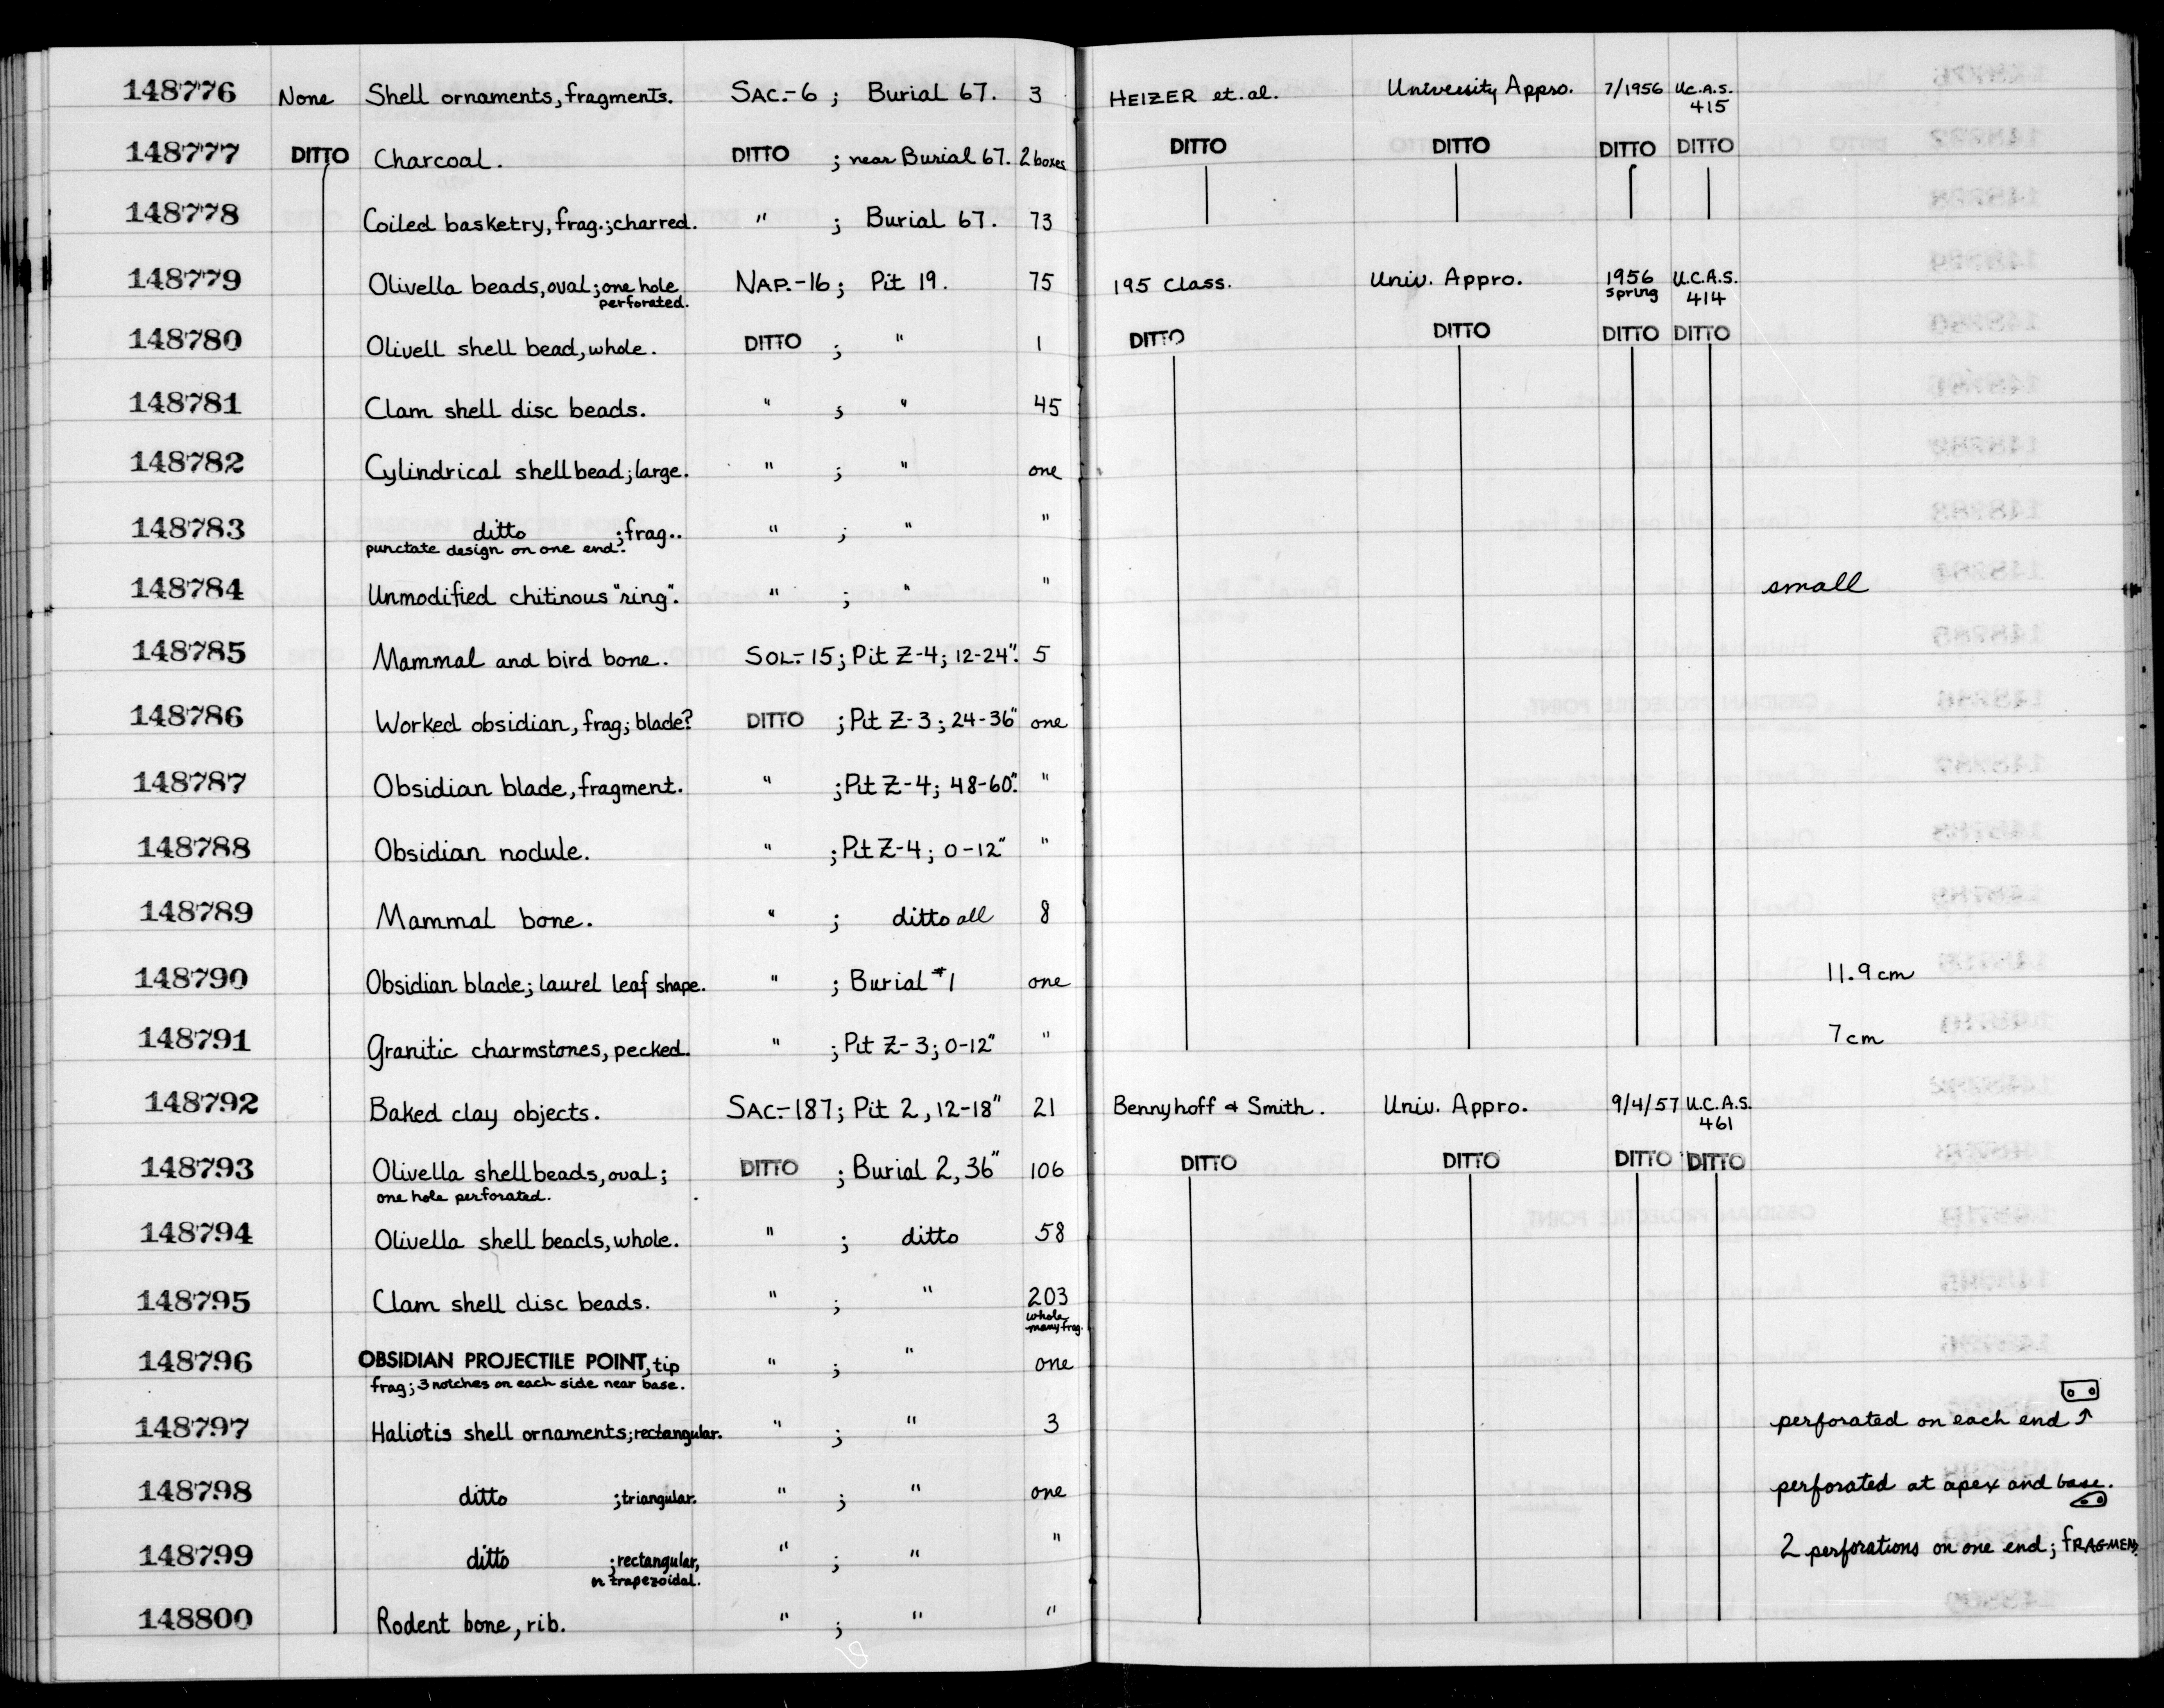 148776 None Shell ornaments, fragments. SAC.-6 ; Burial 67. 3 HEIZER et.al. University Appro. 7/1956 U.C.A.S.
415
148777 DITTO Charcoal. DITTO ; near Burial 67. 2 boxes DITTO DITTO DITTO DITTO
148778 Coiled basketry, frag.; charred. " ; Burial 67. 73
148779 Olivella beads, oval; one hole NAP.-16 ; Pit 19. 75 195 Class. Univ. Appro. 1956 U.C.A.S.
perforated. spring 414
148780 Olivell shell bead, whole. DITTO ; " 1 DITTO DITTO DITTO DITTO
148781 Clam shell disc beads. " ; " 45
148782 Cylindrical shell bead; large. " ; " one
148783 ditto ; frag.. " ; " "
punctate design on one end.
148784 Unmodified chitinous "ring". " ; " " small
148785 Mammal and bird bone. SOL.-15 ; Pit Z-4; 12-24". 5
148786 Worked obsidian, frag; blade? DITTO ; Pit Z-3; 24-36" one
148787 Obsidian blade, fragment. " ; Pit Z-4; 48-60". "
148788 Obsidian nodule. " ; Pit Z-4; 0-12" "
148789 Mammal bone. " ; ditto all 8
148790 Obsidian blade; laurel leaf shape. " ; Burial #1 one 11.9 cm
148791 Granitic charmstones, pecked. " ; Pit Z-3; 0-12" " 7 cm
148792 Baked clay objects. SAC.-187; Pit 2, 12-18" 21 Bennyhoff & Smith. Univ. Appro. 9/4/57 U.C.A.S.
461
148793 Olivella shell beads, oval; DITTO ; Burial 2, 36" 106 DITTO DITTO DITTO DITTO
one hole perforated.
148794 Olivella shell beads, whole. " ; ditto 58
148795 Clam shell disc beads. " ; " 203
whole
many frag.
148796 OBSIDIAN PROJECTILE POINT, tip " ; " one
frag; 3 notches on each side near base.
148797 Haliotis shell ornaments; rectangular. " ; " 3 perforated on each end ↑
148798 ditto ; triangular. " ; " one perforated at apex and base.
148799 ditto ; rectangular, " ; " " 2 perforations on one end; FRAGMEN
n trapezoidal.
148800 Rodent bone, rib. " ; " "